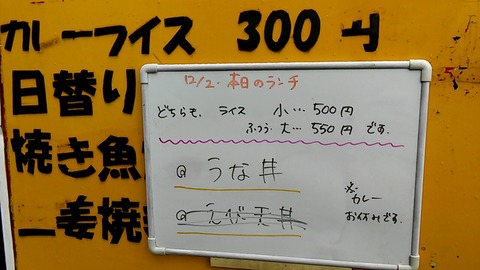 カレーライス 300円
日替り
焼き魚
生姜焼
12/2. 本日のランチ
どちらも、ライス 小…500円
ふつう 大…550円 です.
@ うな丼
@ えび天丼
※ カレー
お休みです.